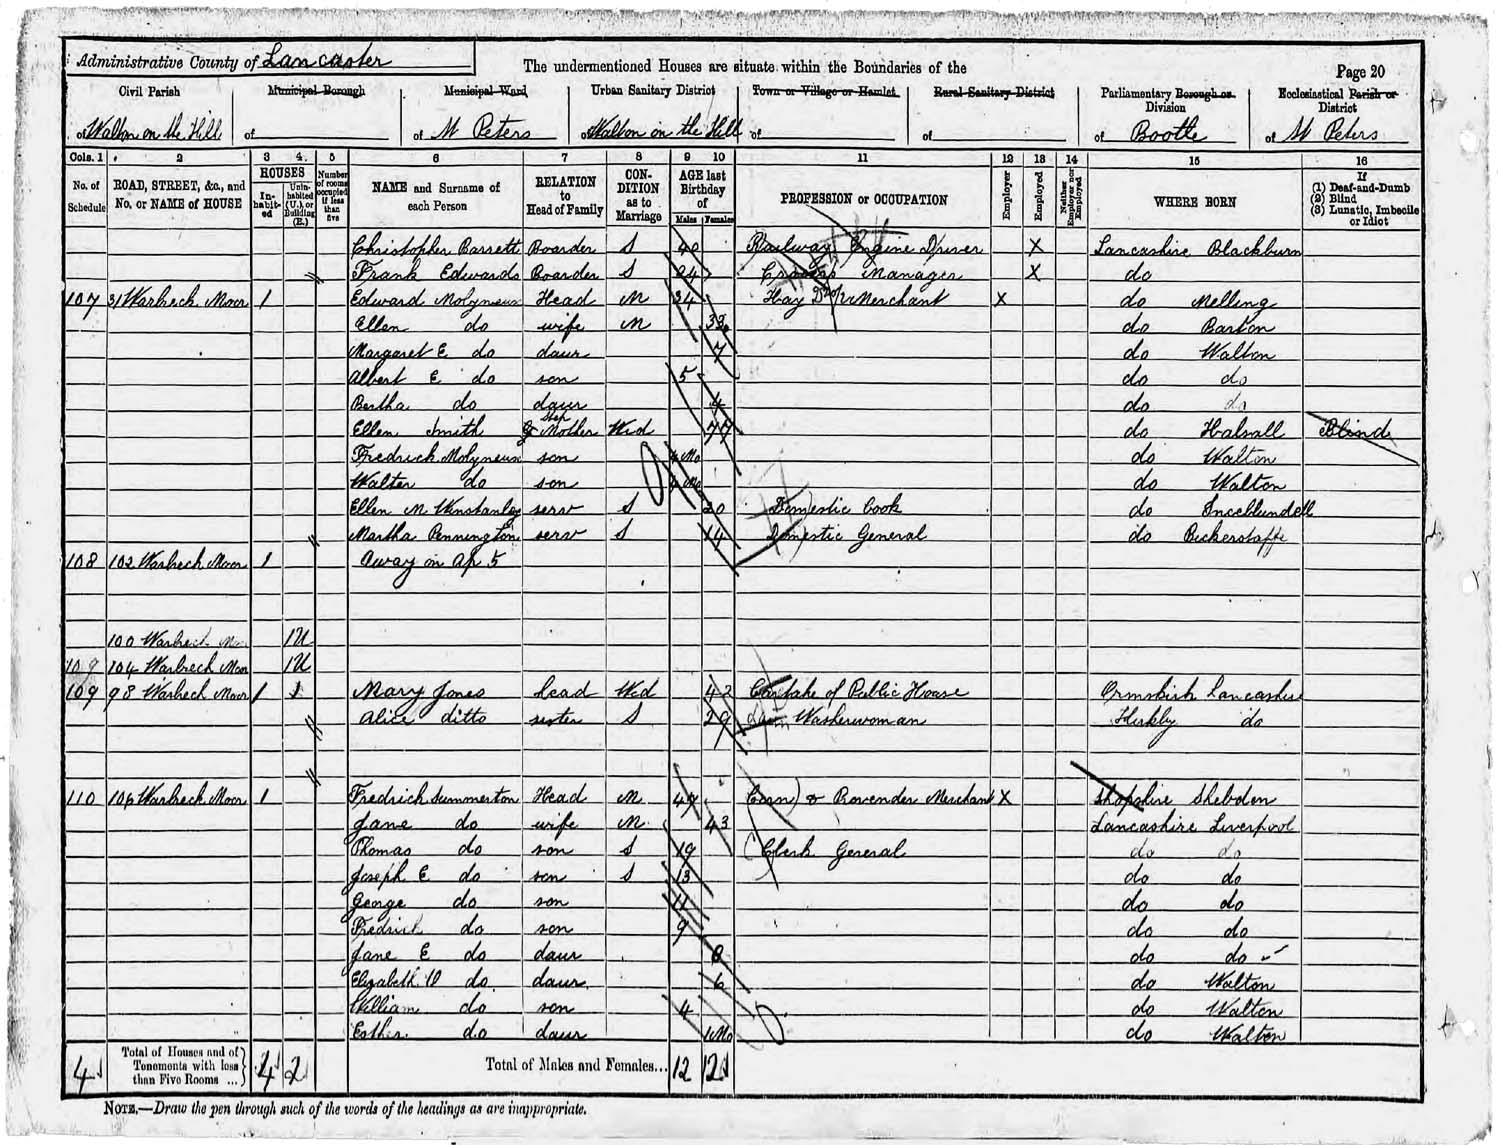 Administrative County of Lancaster
The undermentioned Houses are situate within the Boundaries of the
Page 20
Civil Parish Municipal Borough Municipal Ward Urban Sanitary District Town or Village or Hamlet Rural Sanitary District Parliamentary Borough or Division Ecclesiastical Parish or District
of Walton on the Hill of of St Peters of Walton on the Hill of of of Bootle of St Peters
Cols. 1 2 3 4 5 6 7 8 9 10 11 12 13 14 15 16
No. of Schedule ROAD, STREET, &c., and No. or NAME of HOUSE HOUSES Inhabited Uninhabited (U.), or Building (B.) Number of rooms occupied if less than five NAME and Surname of each Person RELATION to Head of Family CONDITION as to Marriage AGE last Birthday of Males Females PROFESSION or OCCUPATION Employer Employed Neither Employer nor Employed WHERE BORN If (1) Deaf-and-Dumb (2) Blind (3) Lunatic, Imbecile or Idiot
Christopher Barrett Boarder S 40 Railway Engine Driver X Lancashire Blackburn
Frank Edwards Boarder S 24 Manager X do
107 31 Warbreck Moor 1 Edward Molyneux Head M 34 Hay Merchant X do Melling
Ellen do wife M 33 do Barton
Margaret E do daur 7 do Walton
Albert E do son 5 do do
Bertha do daur 4 do do
Ellen Smith Step Mother Wid 77 do Halsall Blind
Fredrick Molyneux son 4 Mo do Walton
Walter do son 4 Mo do Walton
Ellen M Winstanley serv S 20 Domestic Cook do Inceblundell
Martha Pennington serv S 14 Domestic General do Bickerstaffe
108 102 Warbreck Moor 1 Away on Ap. 5
100 Warbreck Moor 1U
109 104 Warbreck Moor 1U
109 98 Warbreck Moor 1 1 Mary Jones head Wid 42 Cartake of Public House Ormskirk Lancashire
Alice ditto sister S 29 Washerwoman Kirkby do
110 106 Warbreck Moor 1 Fredrick Summerton Head M 47 Corn & Provender Merchant X Shopshire Shebden
Jane do wife M 43 Lancashire Liverpool
Thomas do son S 19 Clerk General do do
Joseph E do son S 13 do do
George do son 11 do do
Fredrick do son 9 do do
Jane E do daur 8 do do
Elizabeth do daur 6 do Walton
William do son 4 do Walton
Esther do daur Mo do Walton
4 Total of Houses and of Tenements with less than Five Rooms ... 4 2 Total of Males and Females... 12 12
NOTE.—Draw the pen through such of the words of the headings as are inappropriate.